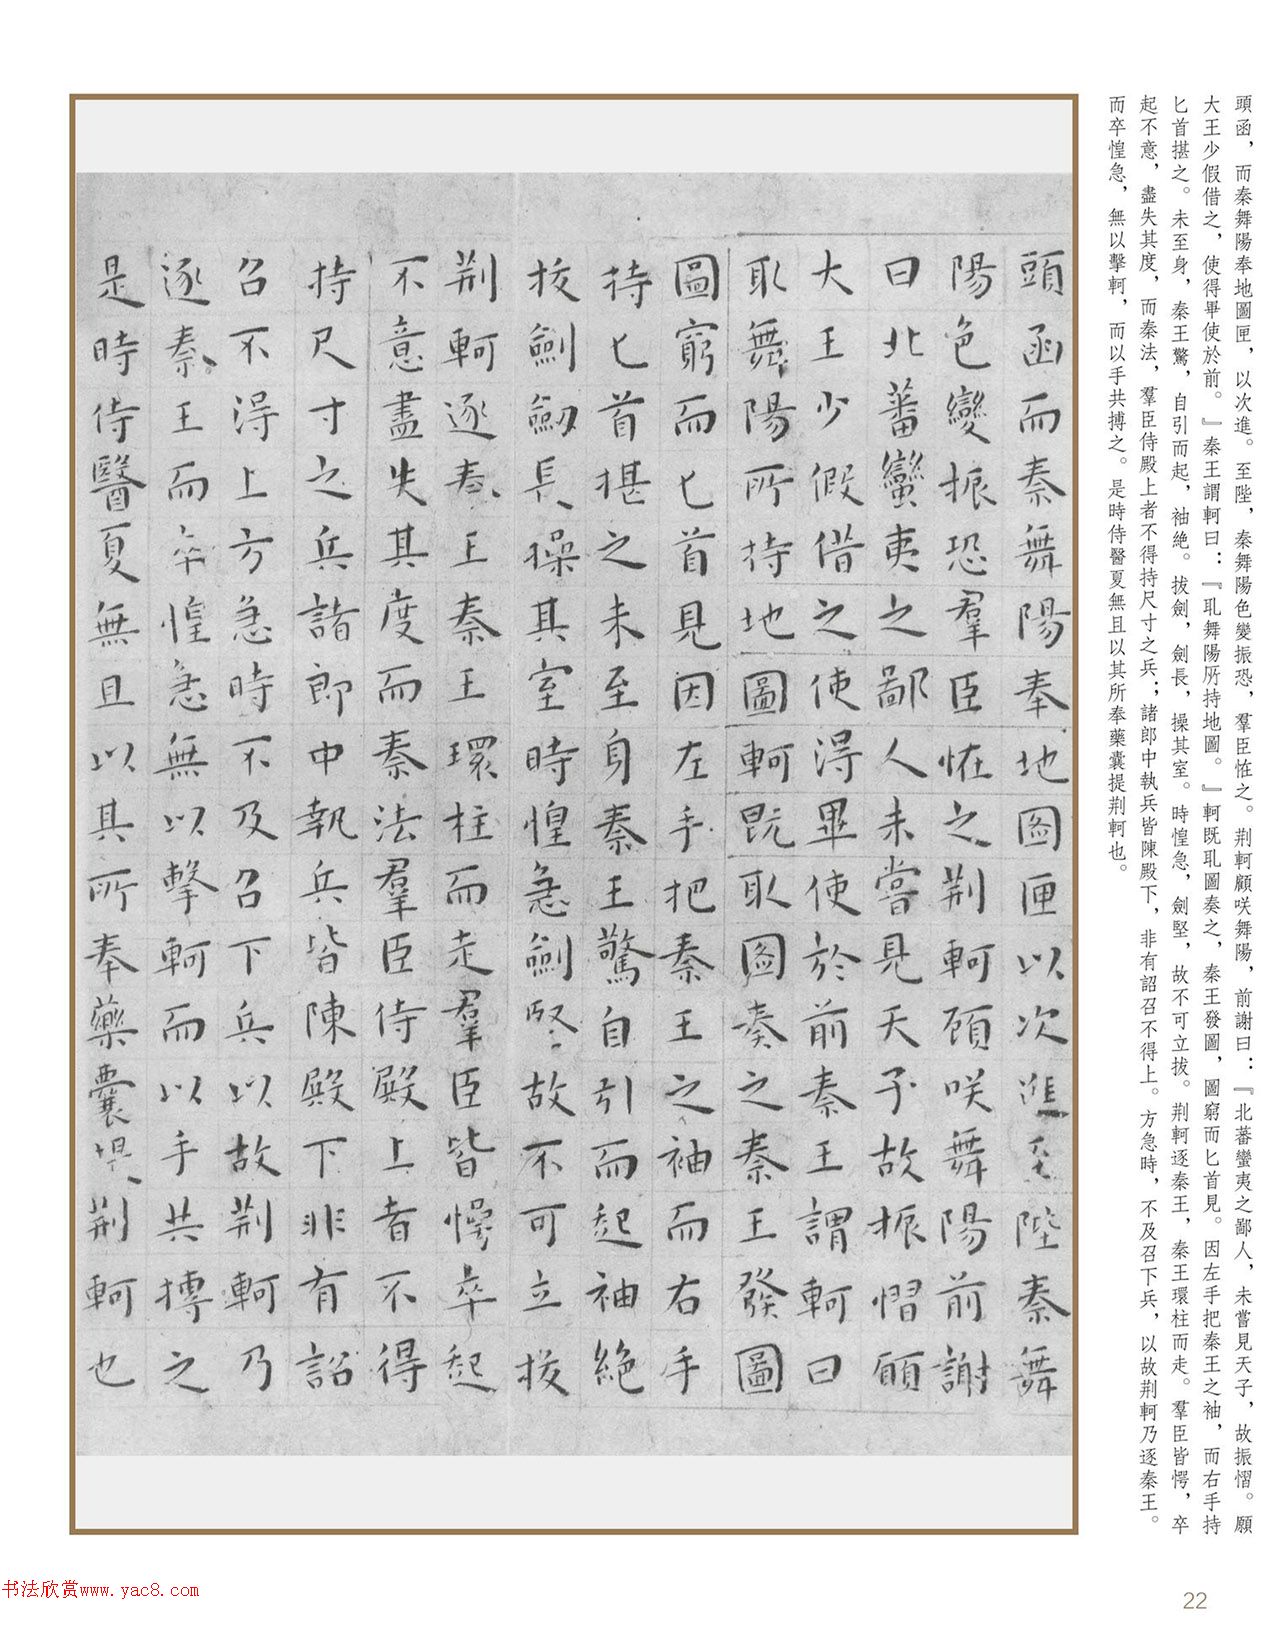 頭函，而秦舞陽奉地圖匣，以次進。至陛，秦舞陽色變振恐，羣臣恠之。荆軻顧咲舞陽，前謝曰：『北蕃蠻夷之鄙人，未嘗見天子，故振慴。願
大王少假借之，使得畢使於前。』秦王謂軻曰：『取舞陽所持地圖。』軻既取圖奏之，秦王發圖，圖窮而匕首見。因左手把秦王之袖，而右手持
匕首揕之。未至身，秦王驚，自引而起，袖絶。拔劍，劍長，操其室。時惶急，劍堅，故不可立拔。荆軻逐秦王，秦王環柱而走。羣臣皆愕，卒
起不意，盡失其度，而秦法，羣臣侍殿上者不得持尺寸之兵；諸郎中執兵皆陳殿下，非有詔召不得上。方急時，不及召下兵，以故荆軻乃逐秦王。
而卒惶急，無以擊軻，而以手共搏之。是時侍醫夏無且以其所奉藥囊提荆軻也。
頭函而秦舞陽奉地圖匣以次進至陛秦舞
陽色變振恐羣臣恠之荆軻顧咲舞陽前謝
曰北蕃蠻夷之鄙人未嘗見天子故振慴願
大王少假借之使得畢使於前秦王謂軻曰
取舞陽所持地圖軻既取圖奏之秦王發圖
圖窮而匕首見因左手把秦王之袖而右手
持匕首揕之未至身秦王驚自引而起袖絶
拔劍劒長操其室時惶急劍堅故不可立拔
荆軻逐秦王秦王環柱而走羣臣皆愕卒起
不意盡失其度而秦法羣臣侍殿上者不得
持尺寸之兵諸郎中執兵皆陳殿下非有詔
召不得上方急時不及召下兵以故荆軻乃
逐秦王而卒惶急無以擊軻而以手共搏之
是時侍醫夏無且以其所奉藥囊提荆軻也
书法欣赏www.yac8.com
22